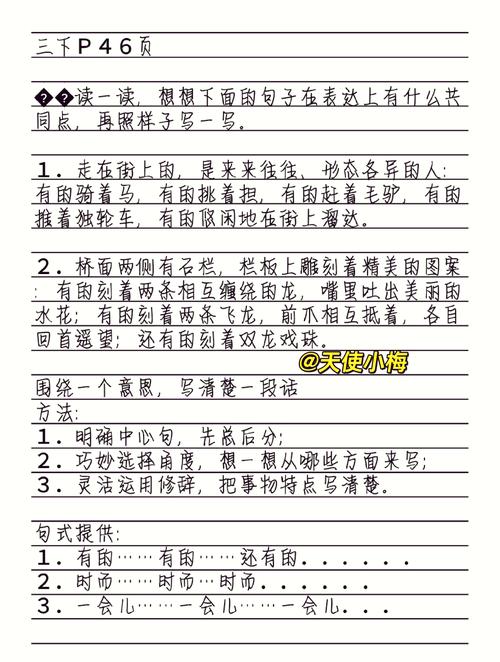 三下P46页
��读一读，想想下面的句子在表达上有什么共
同点，再照样子写一写。
1．走在街上的，是来来往往、形态各异的人：
有的骑着马，有的挑着担，有的赶着毛驴，有的
推着独轮车，有的悠闲地在街上溜达。
2．桥面两侧有石栏，栏板上雕刻着精美的图案
：有的刻着两条相互缠绕的龙，嘴里吐出美丽的
水花；有的刻着两条飞龙，前爪相互抵着，各自
回首遥望；还有的刻着双龙戏珠。
@天使小梅
围绕一个意思，写清楚一段话
方法：
1．明确中心句，先总后分；
2．巧妙选择角度，想一想从哪些方面来写；
3．灵活运用修辞，把事物特点写清楚。
句式提供：
1．有的……有的……还有的．．．．．．
2．时而…时而…时而．．．．．．
3．一会儿……一会儿……一会儿．．．